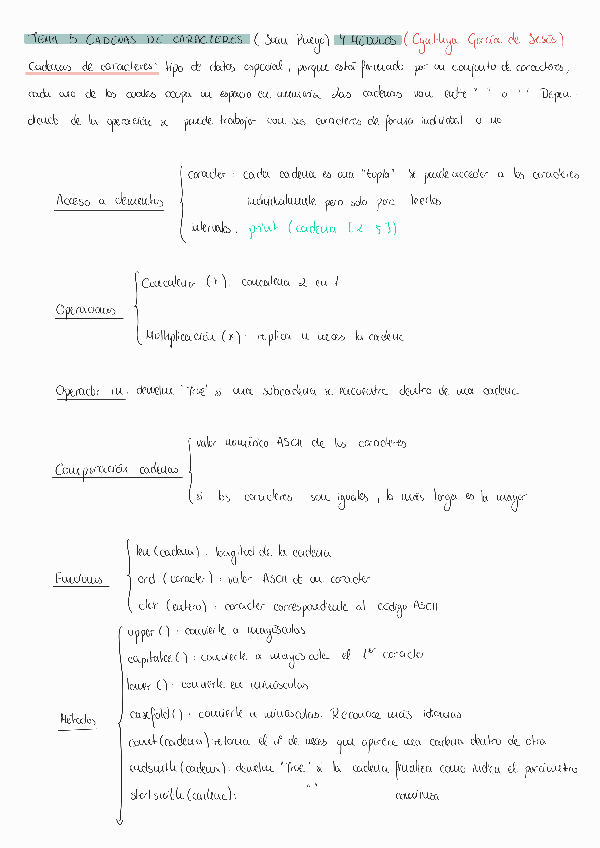 TEMA 5 CADENAS DE CARACTERES (Juan Pueyo) Y MÓDULOS (Cynthya García de Jesús)
Cadenas de caracteres: tipo de datos especial, porque está formado por un conjunto de caracteres,
cada uno de los cuales ocupa un espacio en memoria. Las cadenas van entre " " o ' '. Depen-
diendo de la operación se puede trabajar con sus caracteres de forma individual o no
Acceso a elementos
caracter: cada cadena es una "tupla" se puede acceder a los caracteres
individualmente pero solo para leerlos
intervalos: print (cadena [2:5])
Operaciones
Concatenar (+): concatena 2 en 1
Multiplicación (x): replica n veces la cadena
Operador in: devuelve "True" si una subcadena se encuentra dentro de una cadena
Comparación cadenas
valor numérico ASCII de los caracteres
si los caracteres son iguales, la más larga es la mayor
Funciones
len (cadena): longitud de la cadena
ord (caracter): valor ASCII de un caracter
chr (entero): caracter correspondiente al código ASCII
Métodos
upper (): convierte a mayúsculas
capitalice (): convierte a mayúscula el 1er caracter
lower (): convierte en minúsculas
casefold (): convierte a minúsculas. Reconoce más idiomas
count (cadena): retorna el nº de veces que aparece una cadena dentro de otra
endswith (cadena): devuelve "True" si la cadena finaliza como indica el parámetro
startswith (cadena): " " comienza